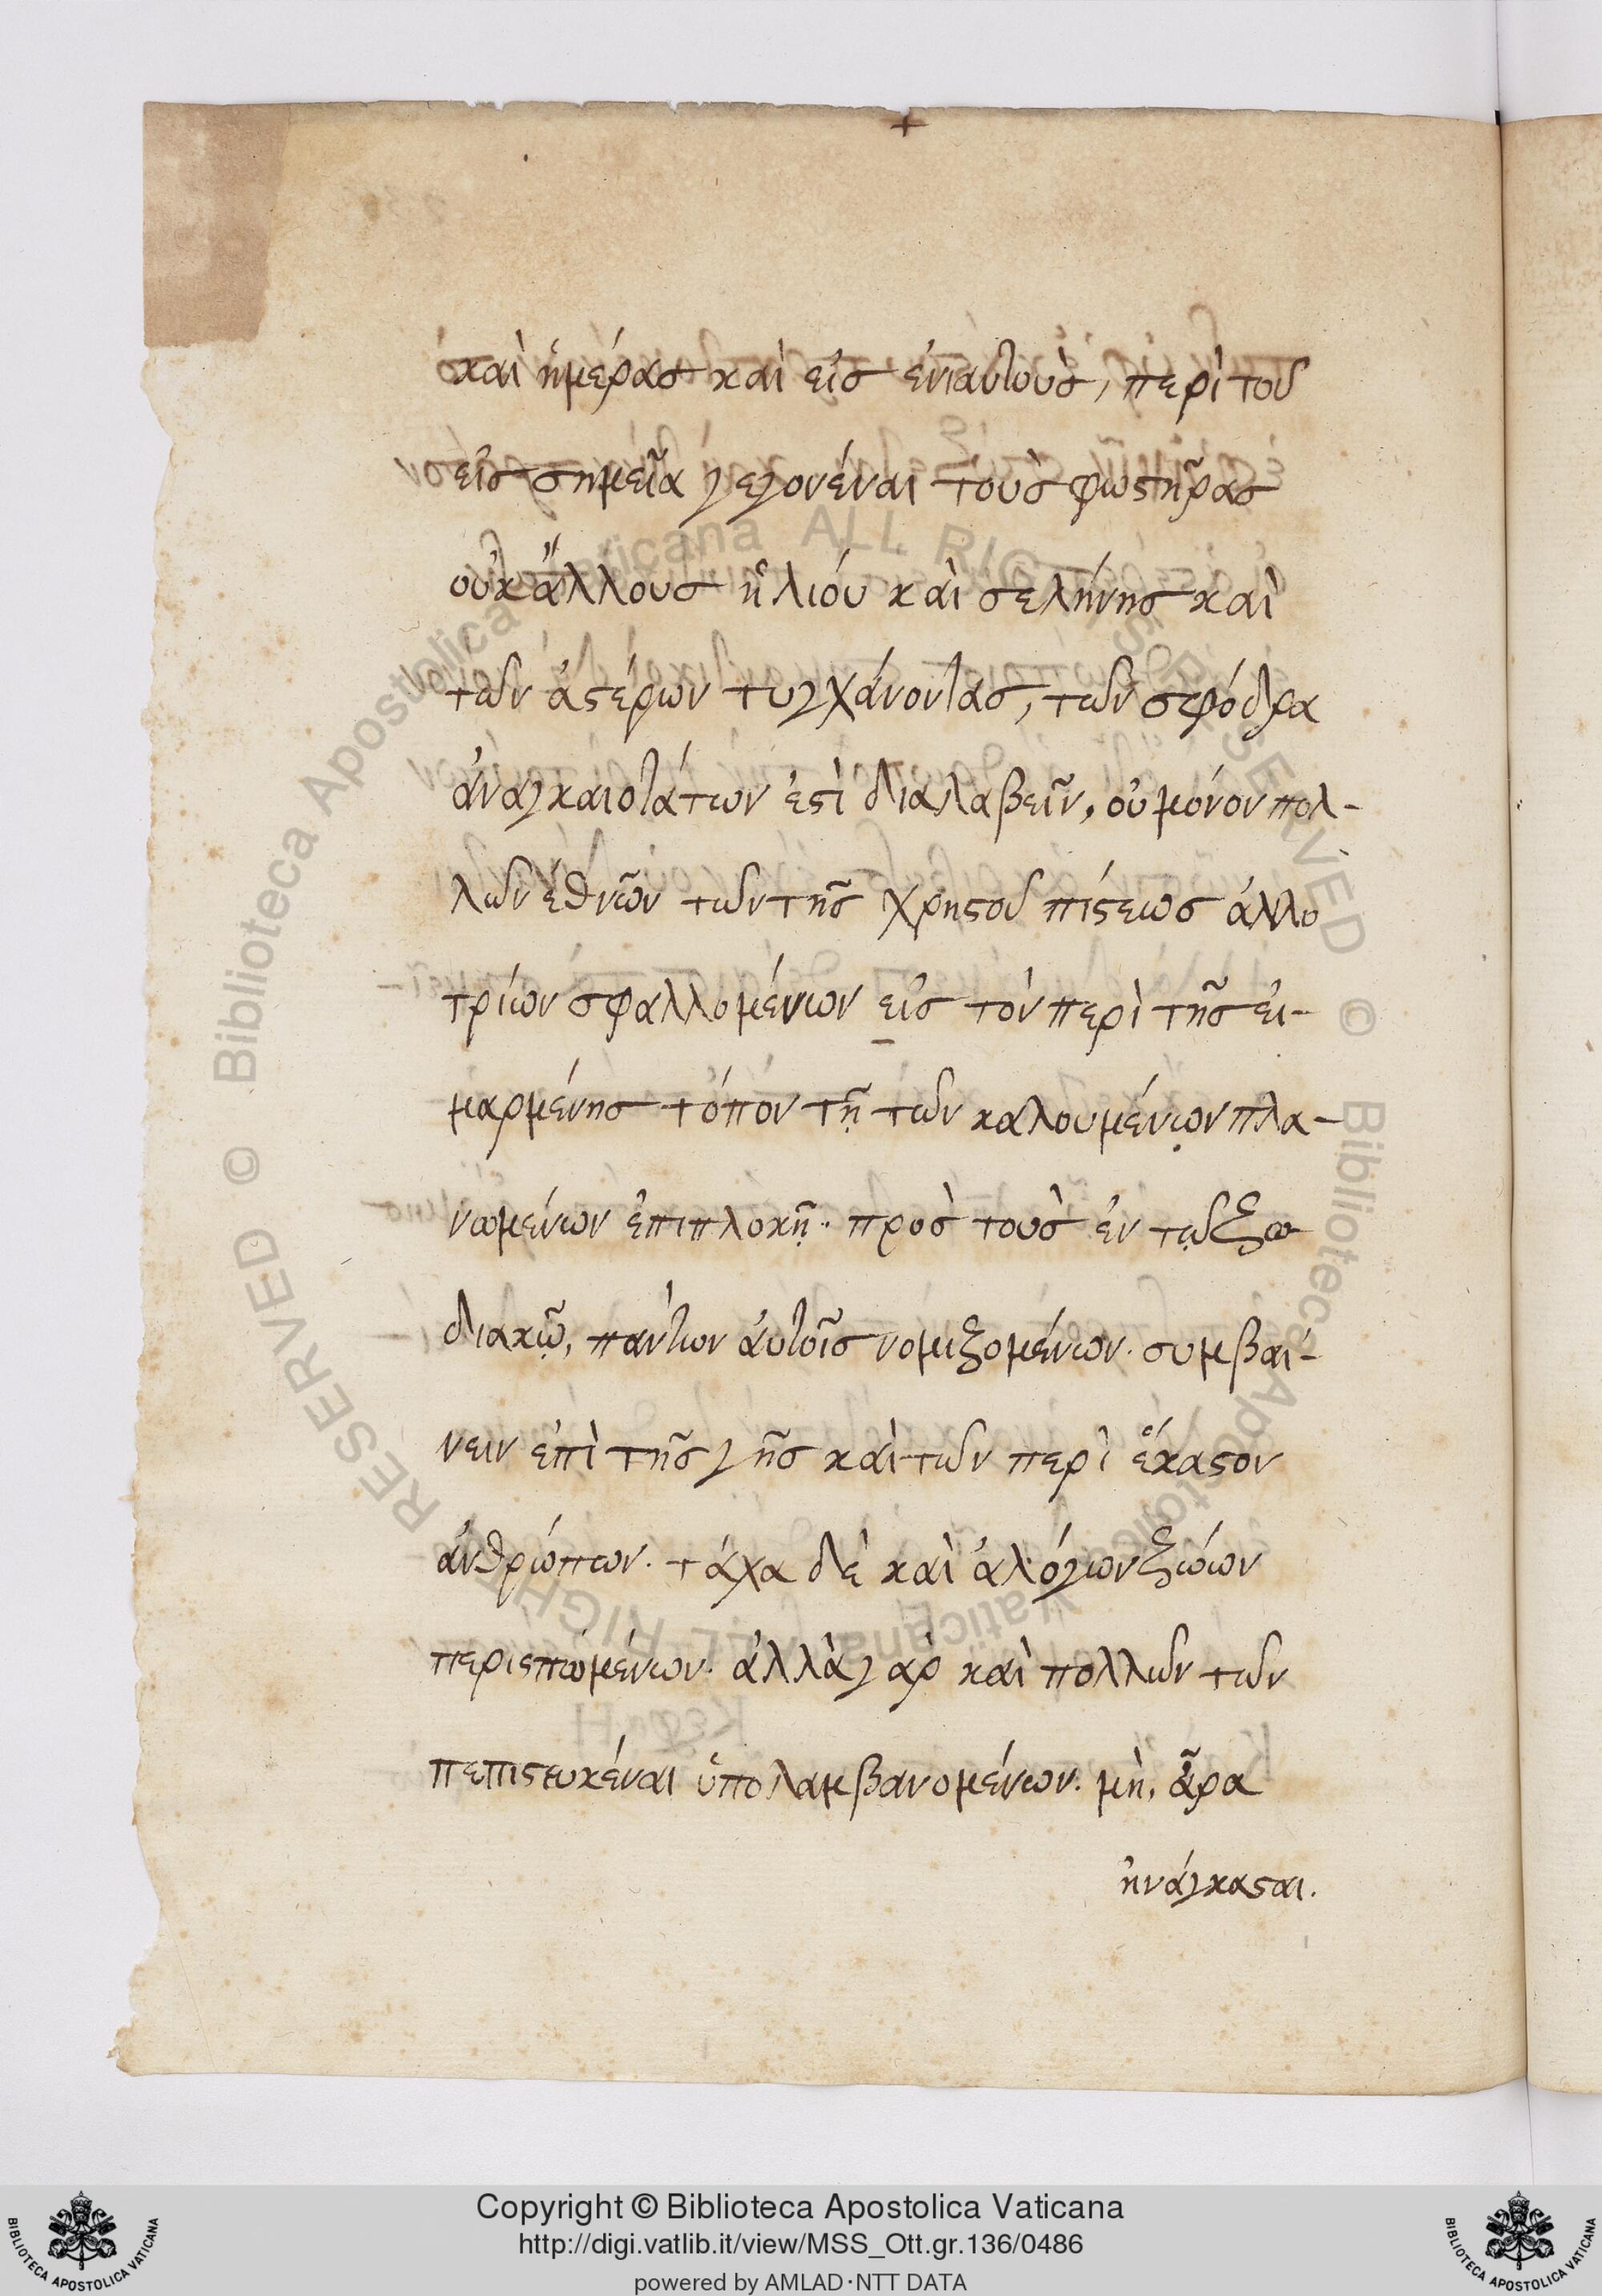 +
καὶ ἡμέρας καὶ εἰς ἐνιαυτοὺς, περὶ τοῦ
εἰς σημεῖα γεγονέναι τοὺς φωστῆρας
οὐκ ἄλλους ἡλίου καὶ σελήνης καὶ
τῶν ἀστέρων τυγχάνοντας, τῶν σφόδρα
ἀναγκαιοτάτων ἐστὶ διαλαβεῖν, οὐ μόνον πολ-
λῶν ἐθνῶν τῶν τῆς χρηστοῦ πίστεως ἀλλο
τρίων σφαλλομένων εἰς τὸν περὶ τῆς εἱ-
μαρμένης τόπον τῇ τῶν καλουμένων πλα-
νωμένων ἐπιπλοκῇ· πρὸς τοὺς ἐν τῷ ζω
διακῷ, πάντων αὐτοῖς νομιζομένων· συμβαί-
νειν ἐπὶ τῆς γῆς καὶ τῶν περὶ ἕκαστον
ἀνθρώπων· τάχα δὲ καὶ ἀλόγων ζώων
περιεπωμένων· ἀλλὰ γὰρ καὶ πολλῶν τῶν
πεπιστευκέναι ὑπολαμβανομένων· μὴ, ἆρα
ἠνάγκασται.
Copyright © Biblioteca Apostolica Vaticana
http://digi.vatlib.it/view/MSS_Ott.gr.136/0486
powered by AMLAD·NTT DATA
BIBLIOTECA APOSTOLICA VATICANA
BIBLIOTECA APOSTOLICA VATICANA
© Biblioteca Apostolica Vaticana ALL RIGHTS RESERVED
© Biblioteca Apostolica Vaticana ALL RIGHTS RESERVED